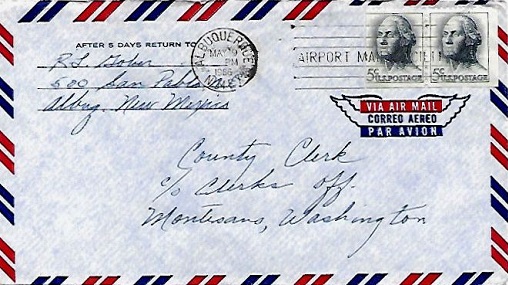 AFTER 5 DAYS RETURN TO
R L Gober
500 San Pablo
Albuq. New Mexico
ALBUQUERQUE
MAY 9
PM
1966
N. MEX.
AIRPORT MAIL
5c U.S. POSTAGE 5c U.S. POSTAGE
VIA AIR MAIL
CORREO AEREO
PAR AVION
County Clerk
c/o Clerks Off.
Montesano, Washington